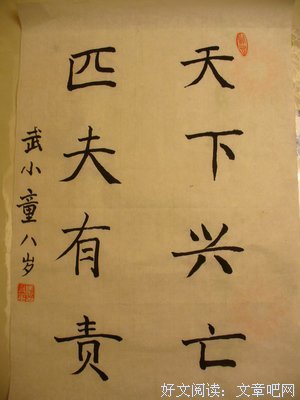 天下兴亡
匹夫有责
武小童八岁
好文阅读：文章吧网